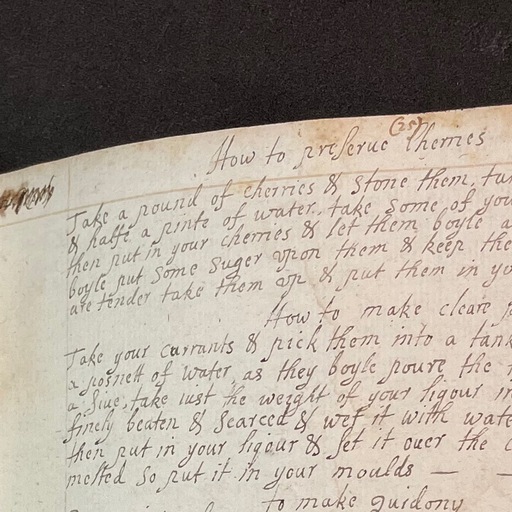 (25)
How to preserue Cherries
Take a pound of cherries & stone them, tur
& halfe a pinte of water, take some of you
then put in your cherries & let them boyle a
boyle put some suger vpon them & keep the
are tender take them vp & put them in yo
How to make cleare p
Take your currants & pick them into a tank
a posnett of water, as they boyle poure the
a siue, take iust the weight of your liquor in
finely beaten & searced & wet it with wate
then put in your liquor & set it ouer the c
melted so put it in your moulds — —
to make quidony